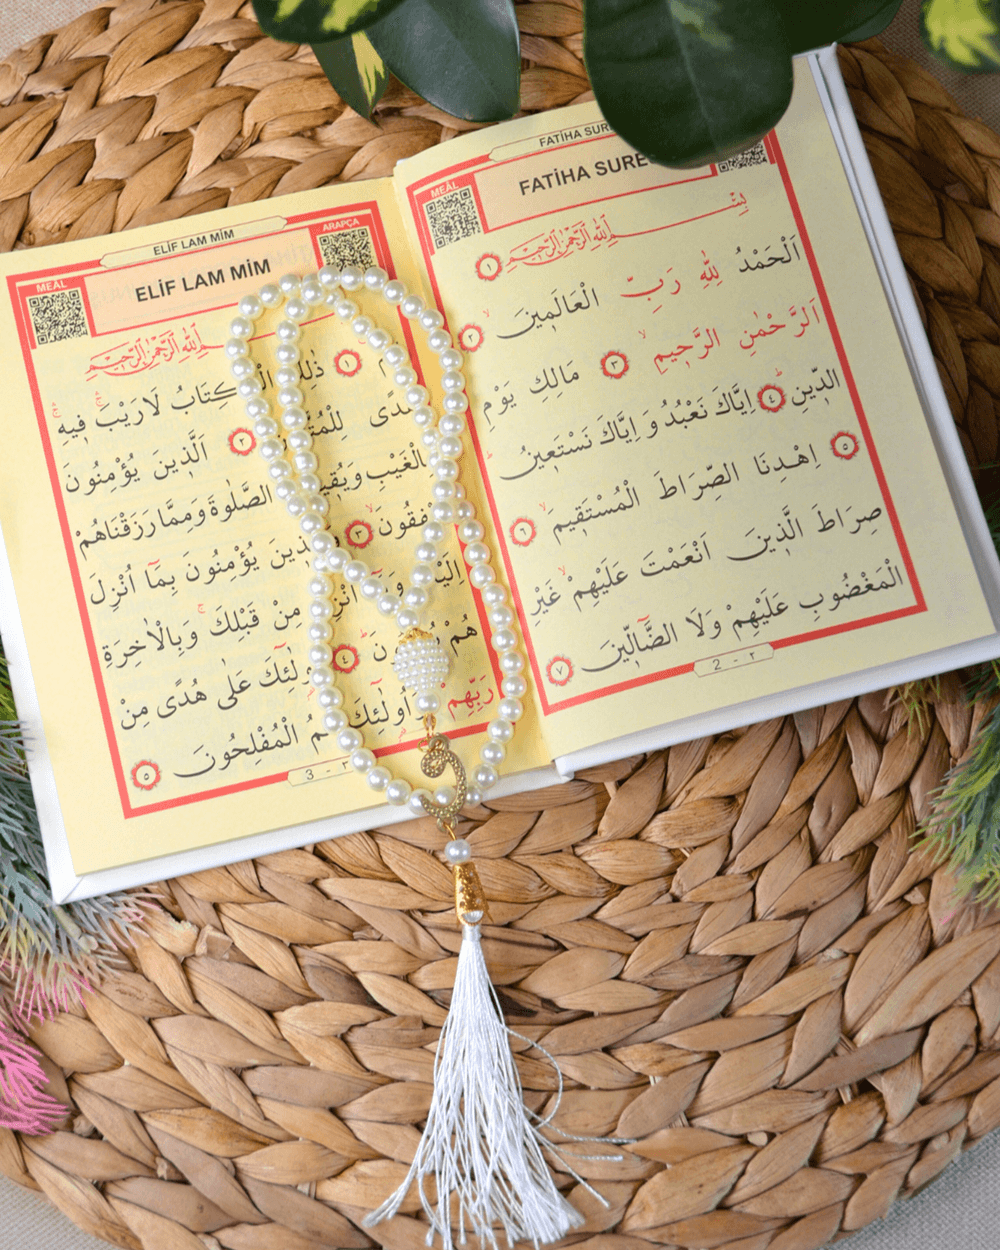 FATİHA SURE
MEÂL
FATİHA SURE
بِسْمِ اللّٰهِ الرَّحْمٰنِ الرَّحٖيمِ ١
اَلْحَمْدُ لِلّٰهِ رَبِّ الْعَالَمٖينَ ٢
اَلرَّحْمٰنِ الرَّحٖيمِ ٣ مَالِكِ يَوْمِ
الدّٖينِ ٤ اِيَّاكَ نَعْبُدُ وَ اِيَّاكَ نَسْتَعٖينُ
٥ اِهْدِنَا الصِّرَاطَ الْمُسْتَقٖيمَ ٦
صِرَاطَ الَّذٖينَ اَنْعَمْتَ عَلَيْهِمْ غَيْرِ
الْمَغْضُوبِ عَلَيْهِمْ وَلَا الضَّٓالّٖينَ ٧
2 - ٢
ELİF LAM MİM
MEÂL
ELİF LAM MİM
ARAPÇA
بِسْمِ اللّٰهِ الرَّحْمٰنِ الرَّحٖيمِ
١ ذٰلِكَ الْكِتَابُ لَارَيْبَ فٖيهِ
هُدًى لِلْمُتَّقٖينَ ٢ اَلَّذٖينَ يُؤْمِنُونَ
بِالْغَيْبِ وَيُقٖيمُونَ الصَّلٰوةَ وَمِمَّا رَزَقْنَاهُمْ
يُنْفِقُونَ ٣ وَالَّذٖينَ يُؤْمِنُونَ بِمَٓا اُنْزِلَ
اِلَيْكَ وَمَٓا اُنْزِلَ مِنْ قَبْلِكَ وَبِالْاٰخِرَةِ
هُمْ ٤ اُولٰٓئِكَ عَلٰى هُدًى مِنْ
رَبِّهِمْ وَاُولٰٓئِكَ هُمُ الْمُفْلِحُونَ ٥
3 - ٣